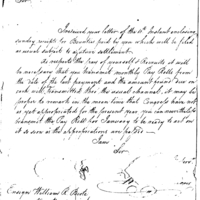 Sir
I received your letter of the 11th Instant enclosing
sundry receipts for Bounties paid by you which will be filed
as such subject to a future settlement.
As respects the pay of yourself & Recruits it will
be necessary that you transmit monthly Pay Rolls from
the date of the last payment and the amount found due on
such will be transmitted thro the usual channel. It may be
proper to remark in the mean time that Congress have not
as yet appropriated for the present year you can nevertheless
transmit the Pay Roll for January to be ready to act on
it as soon as the appropriations are passed
I am
Sir
Ensign William R.